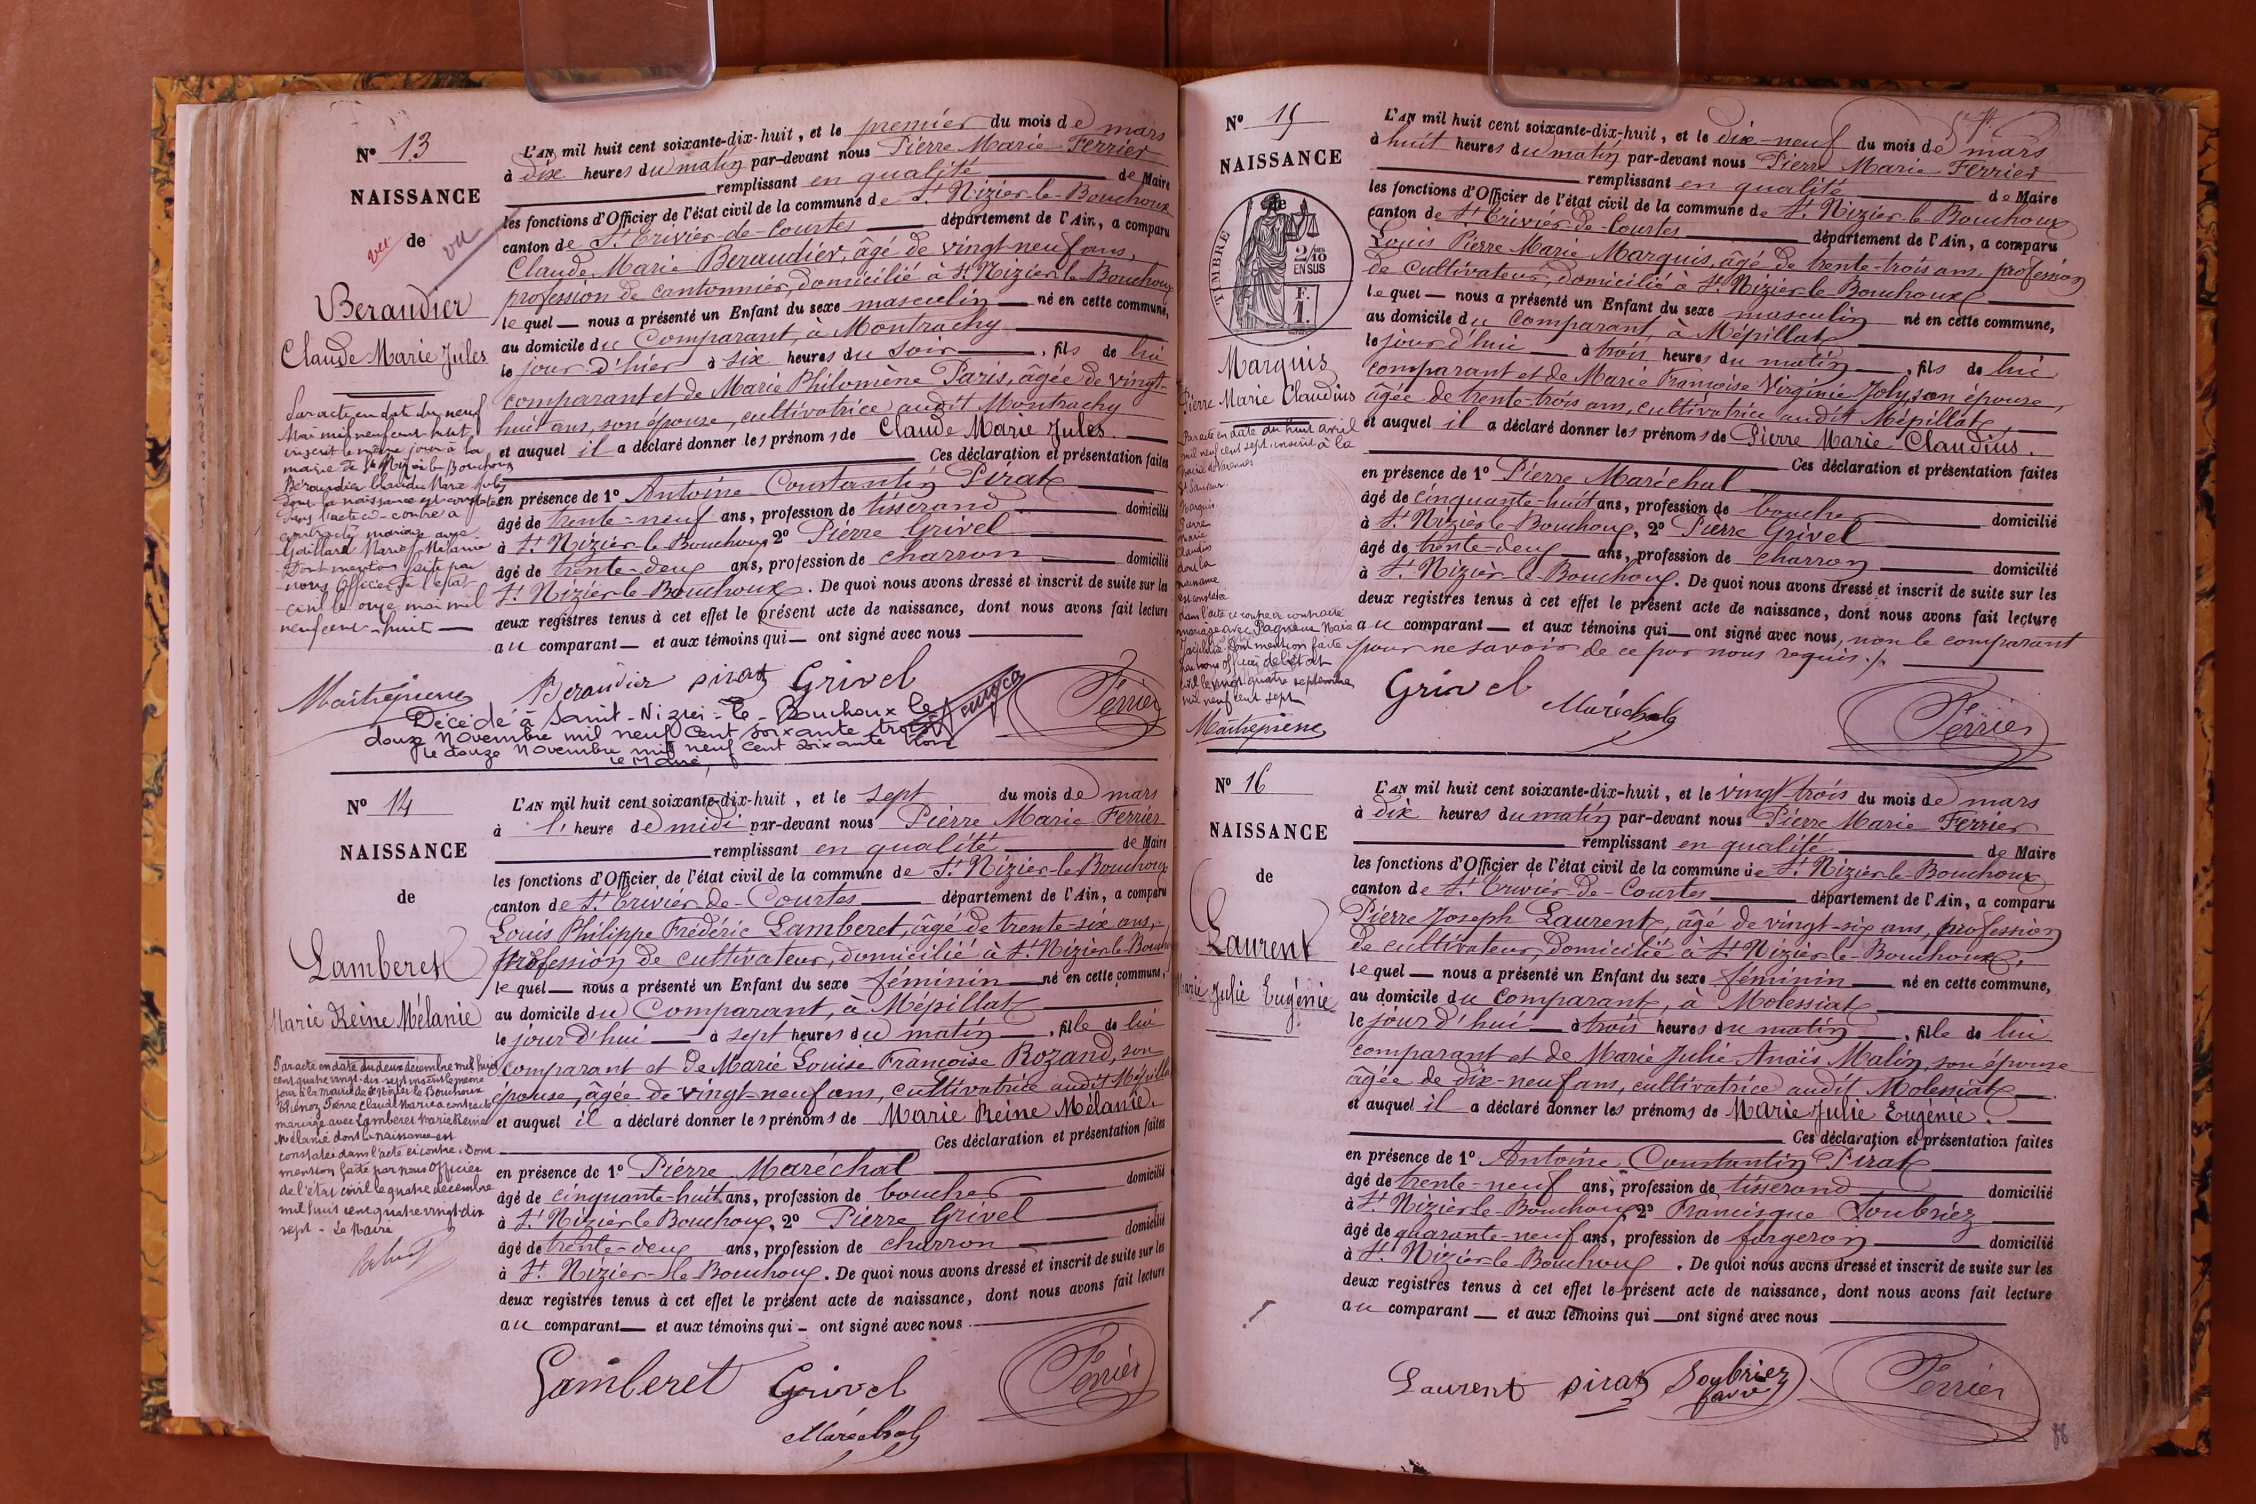 N° 13
NAISSANCE
de
vu
vu
Beraudier
Claude Marie Jules
Par acte en date du neuf
Mai mil neuf cent huit
inscrit le même jour à la
mairie de St Nizier le Bouchoux
Beraudier Claude Marie Jules
dont la naissance est constatée
dans l'acte ci-contre a
contracté mariage avec
Gaillard Marie Mélanie
Dont mention faite par
nous Officier de l'état-
civil le onze mai mil
neuf cent huit
L'AN mil huit cent soixante-dix-huit, et le premier du mois de mars
à dix heures du matin par-devant nous Pierre Marie Ferrier
remplissant en qualité de Maire
les fonctions d'Officier de l'état civil de la commune de St Nizier-le-Bouchoux
canton de St Trivier-de-Courtes département de l'Ain, a comparu
Claude Marie Beraudier, âgé de vingt-neuf ans,
profession de cantonnier, domicilié à St Nizier le Bouchoux
lequel nous a présenté un Enfant du sexe masculin né en cette commune,
au domicile du Comparant, à Montrachy
le jour d'hier à six heures du soir, fils de lui
comparant et de Marie Philomène Paris, âgée de vingt-
huit ans, son épouse, cultivatrice audit Montrachy
et auquel il a déclaré donner les prénoms de Claude Marie Jules.
Ces déclaration et présentation faites
en présence de 1° Antoine Constantin Pirat
âgé de trente-neuf ans, profession de tisserand domicilié
à St Nizier le Bouchoux 2° Pierre Grivel
âgé de trente-deux ans, profession de charron domicilié
à St Nizier le Bouchoux. De quoi nous avons dressé et inscrit de suite sur les
deux registres tenus à cet effet le présent acte de naissance, dont nous avons fait lecture
au comparant et aux témoins qui ont signé avec nous
Maitrepierre Beraudier Pirat Grivel Ferrier
Décédé à Saint-Nizier-le-Bouchoux le
douze novembre mil neuf cent soixante trois
le douze novembre mil neuf cent soixante trois
Le Maire,
N° 14
NAISSANCE
de
Lamberet
Marie Reine Mélanie
Par acte en date du deux décembre mil huit
cent quatre vingt-dix-sept inscrit le même
jour à la mairie de St Nizier le Bouchoux
Pierre Claude Marie a contracté
mariage avec Lamberet Marie Reine
Mélanie dont la naissance est
constatée dans l'acte ci contre. Dont
mention faite par nous Officier
de l'état civil le quatre décembre
mil huit cent quatre vingt dix
sept - Le Maire
L'AN mil huit cent soixante-dix-huit, et le sept du mois de mars
à l'heure de midi par-devant nous Pierre Marie Ferrier
remplissant en qualité de Maire
les fonctions d'Officier de l'état civil de la commune de St Nizier-le-Bouchoux
canton de St Trivier-de-Courtes département de l'Ain, a comparu
Louis Philippe Frédéric Lamberet, âgé de trente-six ans,
profession de cultivateur, domicilié à St Nizier-le-Bouch
lequel nous a présenté un Enfant du sexe féminin né en cette commune,
au domicile du Comparant, à Mépillat
le jour d'hui à sept heures du matin, fille de lui
comparant et de Marie Louise Françoise Rozand, son
épouse, âgée de vingt-neuf ans, cultivatrice audit Mépillat
et auquel il a déclaré donner les prénoms de Marie Reine Mélanie.
Ces déclaration et présentation faites
en présence de 1° Pierre Maréchal
âgé de cinquante-huit ans, profession de boucher domicilié
à St Nizier le Bouchoux, 2° Pierre Grivel
âgé de trente-deux ans, profession de charron domicilié
à St Nizier-le Bouchoux. De quoi nous avons dressé et inscrit de suite sur les
deux registres tenus à cet effet le présent acte de naissance, dont nous avons fait lecture
au comparant et aux témoins qui ont signé avec nous
Lamberet Grivel Ferrier
Maréchal
N° 15
NAISSANCE
TIMBRE
2/10
EN SUS
Marquis
Pierre Marie Claudius
Par acte en date du huit avril
mil neuf cent sept, inscrit à la
mairie de Varennes
St Sauveur
Marquis
Pierre
Marie
Claudius
dont la
naissance
est constatée
dans l'acte ci contre a contracté
mariage avec Pagneux Marie
Dont mention faite
par nous officier de l'état
civil le vingt quatre septembre
mil neuf cent sept
Maitrepierre
L'AN mil huit cent soixante-dix-huit, et le dix-neuf du mois de mars
à huit heures du matin par-devant nous Pierre Marie Ferrier
remplissant en qualité de Maire
les fonctions d'Officier de l'état civil de la commune de St Nizier-le-Bouchoux
canton de St Trivier-de-Courtes département de l'Ain, a comparu
Louis Pierre Marie Marquis, âgé de trente-trois ans, profession
de cultivateur, domicilié à St Nizier-le-Bouchoux
lequel nous a présenté un Enfant du sexe masculin né en cette commune,
au domicile du Comparant, à Mépillat
le jour d'hui à trois heures du matin, fils de lui
comparant et de Marie Françoise Virginie Joly, son épouse,
âgée de trente-trois ans, cultivatrice audit Mépillat
et auquel il a déclaré donner les prénoms de Pierre Marie Claudius.
Ces déclaration et présentation faites
en présence de 1° Pierre Maréchal
âgé de cinquante-huit ans, profession de boucher domicilié
à St Nizier le Bouchoux, 2° Pierre Grivel
âgé de trente-deux ans, profession de charron domicilié
à St Nizier-le-Bouchoux. De quoi nous avons dressé et inscrit de suite sur les
deux registres tenus à cet effet le présent acte de naissance, dont nous avons fait lecture
au comparant et aux témoins qui ont signé avec nous, non le comparant
pour ne savoir de ce par nous requis.
Grivel Maréchal Ferrier
N° 16
NAISSANCE
de
Laurent
Marie Julie Eugénie
L'AN mil huit cent soixante-dix-huit, et le vingt trois du mois de mars
à dix heures du matin par-devant nous Pierre Marie Ferrier
remplissant en qualité de Maire
les fonctions d'Officier de l'état civil de la commune de St Nizier-le-Bouchoux
canton de St Trivier-de-Courtes département de l'Ain, a comparu
Pierre Joseph Laurent, âgé de vingt-six ans, profession
de cultivateur, domicilié à St Nizier-le-Bouchoux,
lequel nous a présenté un Enfant du sexe féminin né en cette commune,
au domicile du comparant, à Molessiat
le jour d'hui à trois heures du matin, fille de lui
comparant et de Marie Julie Anaïs Malin, son épouse
âgée de dix-neuf ans, cultivatrice audit Molessiat
et auquel il a déclaré donner les prénoms de Marie Julie Eugénie.
Ces déclaration et présentation faites
en présence de 1° Antoine Constantin Pirat
âgé de trente-neuf ans, profession de tisserand domicilié
à St Nizier le Bouchoux 2° Francisque Soubriez
âgé de quarante-neuf ans, profession de forgeron domicilié
à St Nizier-le Bouchoux. De quoi nous avons dressé et inscrit de suite sur les
deux registres tenus à cet effet le présent acte de naissance, dont nous avons fait lecture
au comparant et aux témoins qui ont signé avec nous
Laurent Pirat Soubriez Ferrier